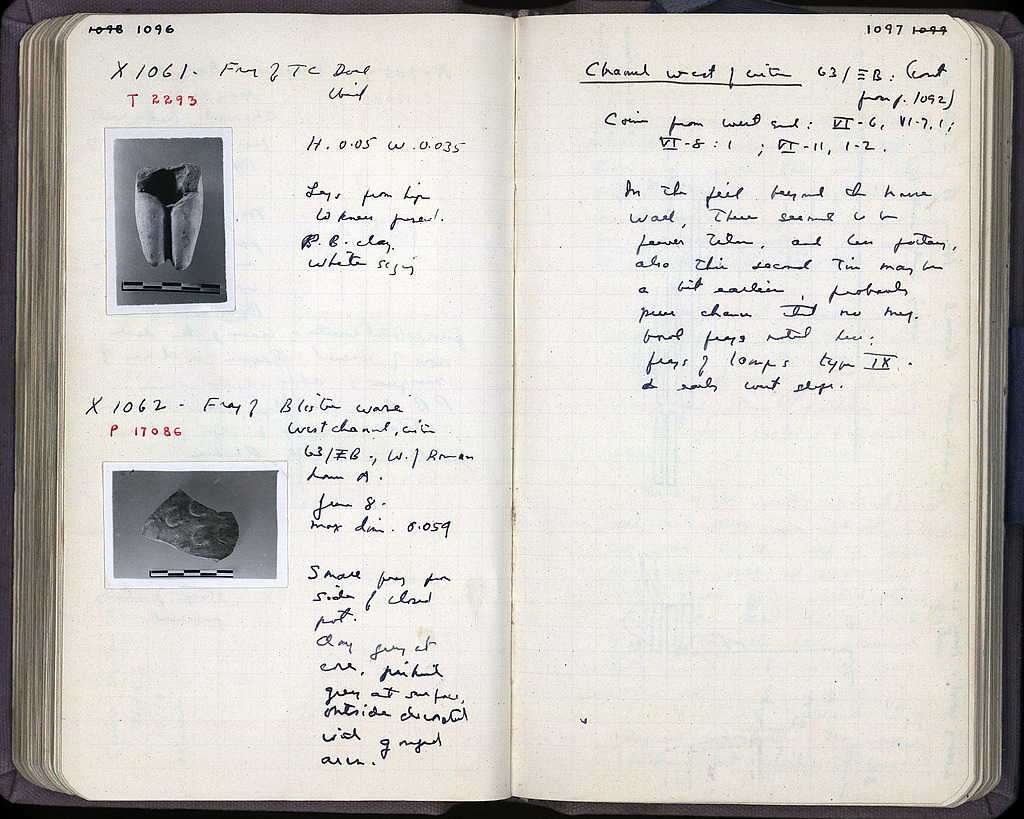 1098 1096
X 1061 - Frag of TC Doll
Ibid
T 2293
H. 0.05 W. 0.035
Legs from hip
to knees present.
P.B. clay.
white sizing
X 1062 - Frag of Blister ware
P 17086
West channel, cistern
63/ΞB, W. of Roman
house A.
from 8.
max dim. 0.059
Small frag from
side of closed
pot.
Clay grey at
core, pinkish
grey at surface,
outside decorated
with gouged
arcs.
1097 1099
Channel west of cistern 63/ΞB: (cont
from p. 1092)
Coins from west end: VI-6, VI-7,1;
VI-8:1 ; VI-11, 1-2.
In the fill beyond the house
wall, there seemed to be
fewer tiles, and less pottery,
also this second fill may be
a bit earlier, probably
pure chance that no meg.
bowl frags noted here;
frags of lamps type IX.
& early